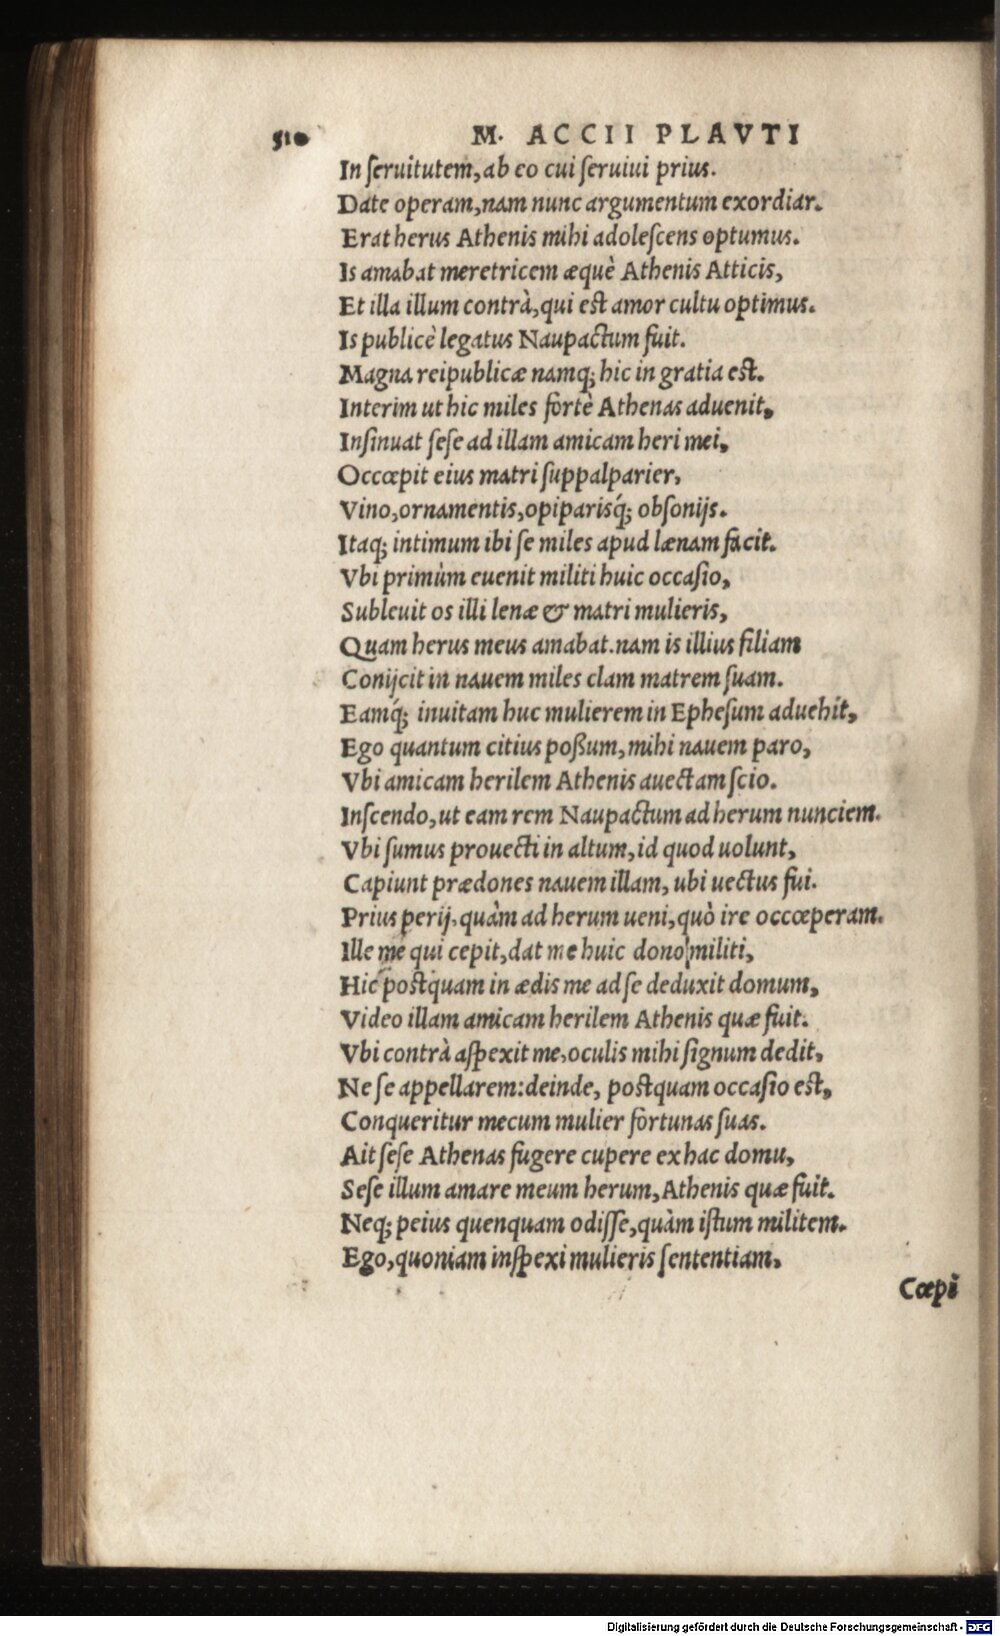 510 M. ACCII PLAVTI
In ſeruitutem, ab eo cui ſeruiui prius.
Date operam, nam nunc argumentum exordiar.
Erat herus Athenis mihi adoleſcens optumus.
Is amabat meretricem æquè Athenis Atticis,
Et illa illum contrà, qui eſt amor cultu optimus.
Is publicè legatus Naupactum fuit.
Magna reipublicæ namq; hic in gratia eſt.
Interim ut hic miles fortè Athenas aduenit,
Inſinuat ſeſe ad illam amicam heri mei,
Occœpit eius matri ſuppalparier,
Vino, ornamentis, opiparisq́; obſonijs.
Itaq; intimum ibi ſe miles apud lænam facit.
Vbi primùm euenit militi huic occaſio,
Subleuit os illi lenæ & matri mulieris,
Quam herus meus amabat. nam is illius filiam
Conijcit in nauem miles clam matrem ſuam.
Eamq́; inuitam huc mulierem in Epheſum aduehit,
Ego quantum citius poßum, mihi nauem paro,
Vbi amicam herilem Athenis auectam ſcio.
Inſcendo, ut eam rem Naupactum ad herum nunciem.
Vbi ſumus prouecti in altum, id quod uolunt,
Capiunt prædones nauem illam, ubi uectus fui.
Prius perij, quàm ad herum ueni, quò ire occœperam.
Ille me qui cepit, dat me huic dono militi,
Hic poſtquam in ædis me ad ſe deduxit domum,
Video illam amicam herilem Athenis quæ fuit.
Vbi contrà aſpexit me, oculis mihi ſignum dedit,
Ne ſe appellarem: deinde, poſtquam occaſio eſt,
Conqueritur mecum mulier fortunas ſuas.
Ait ſeſe Athenas fugere cupere ex hac domu,
Seſe illum amare meum herum, Athenis quæ fuit.
Neq; peius quenquam odiſſe, quàm iſtum militem.
Ego, quoniam inſpexi mulieris ſententiam,
Cœpi
Digitalisierung gefördert durch die Deutsche Forschungsgemeinschaft - DFG